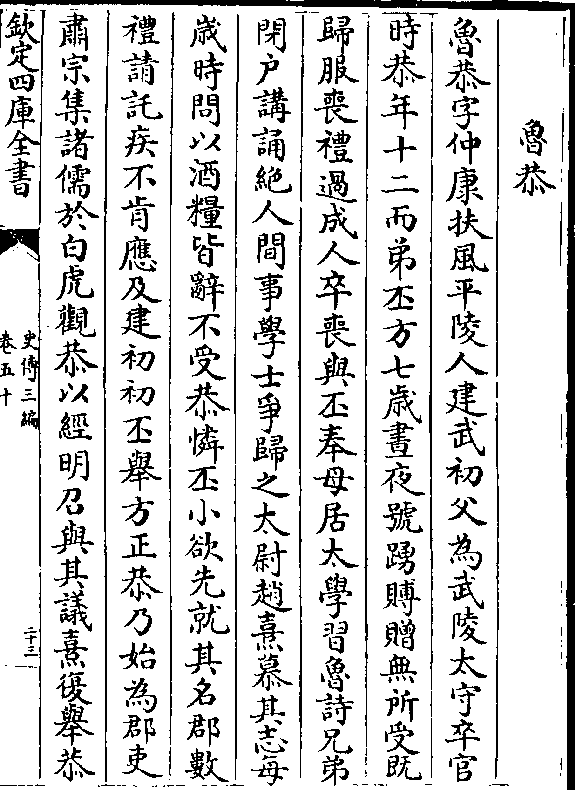 魯恭
魯恭字仲康扶風平陵人建武初父為武陵太守卒官
時恭年十二而弟丕方七歲晝夜號踴賻贈無所受既
歸服喪禮過成人卒喪與丕奉母居太學習魯詩兄弟
閉户講誦絶人間事學士爭歸之太尉趙熹慕其志每
歲時問以酒糧皆辭不受恭憐丕小欲先就其名郡數
禮請託疾不肯應及建初初丕舉方正恭乃始為郡吏
肅宗集諸儒於白虎觀恭以經明召與其議熹復舉恭
欽定四庫全書
史傳三編
卷五十
二十三